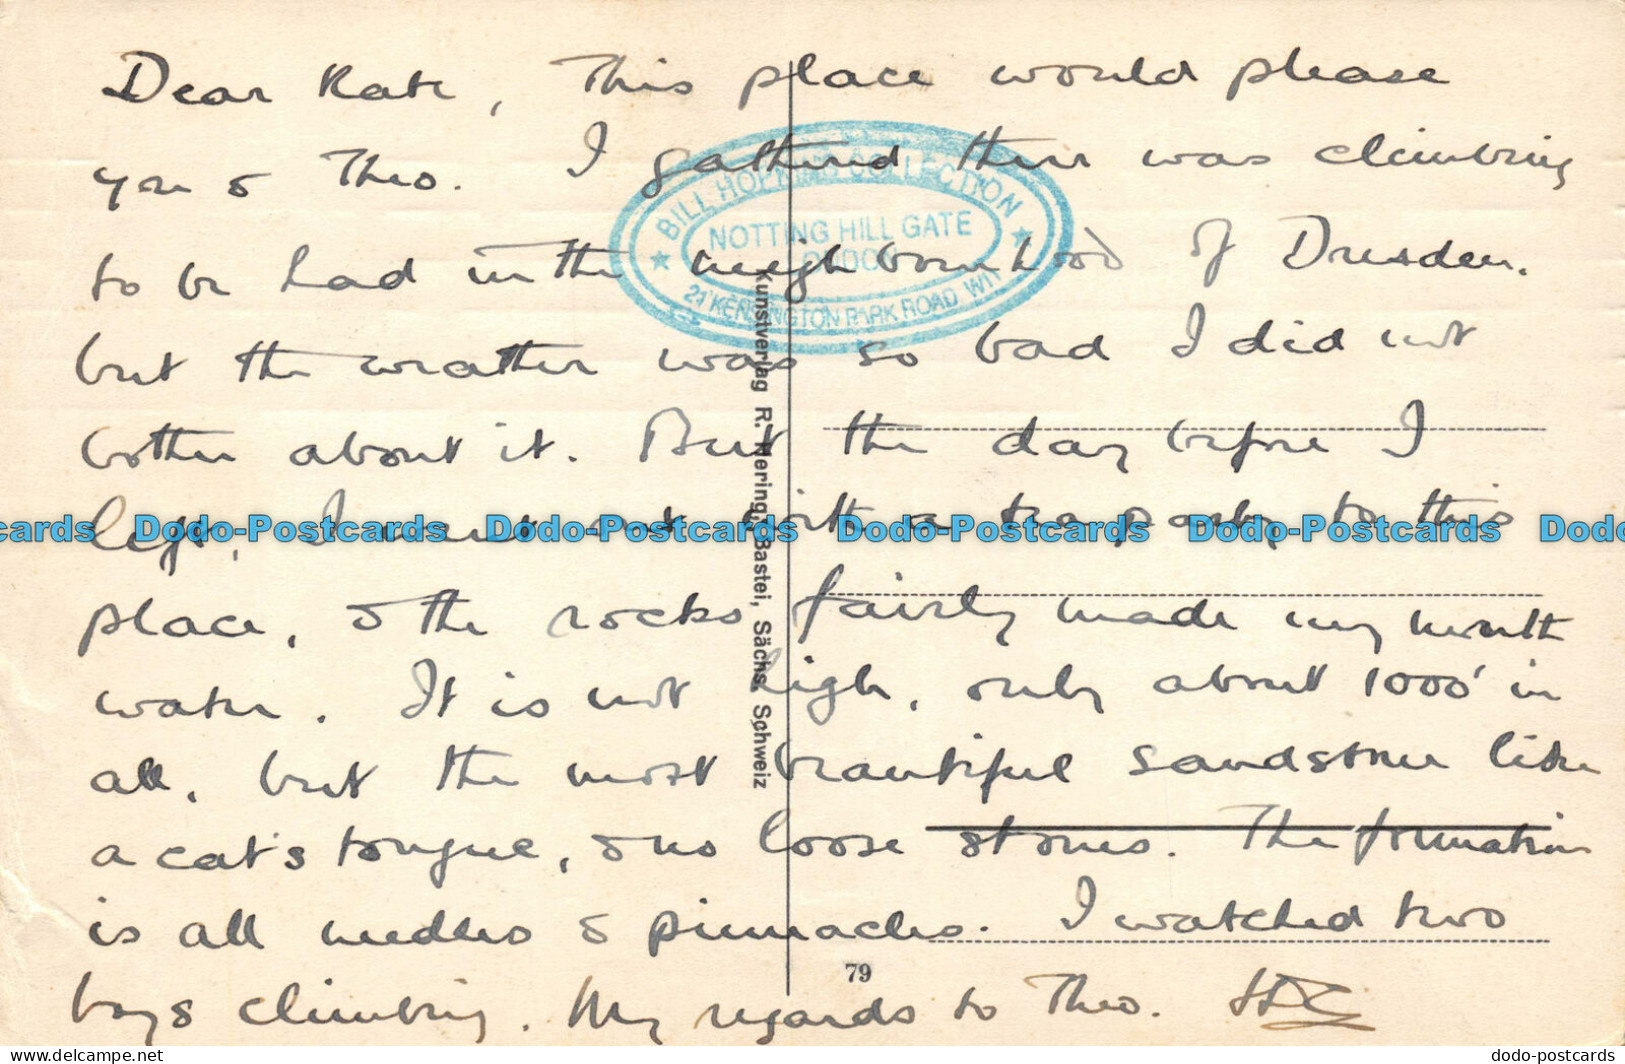 Dear Kate, This place would please
you & Theo. I gathered there was climbing
to be had in the neighbourhood of Dresden.
but the weather was so bad I did not
bother about it. But the day before I
left, I went out with a tea party to this
place, & the rocks fairly made my mouth
water. It is not high, only about 1000' in
all, but the most beautiful sandstone like
a cat's tongue, & no loose stones. The formation
is all needles & pinnacles. I watched two
boys climbing. My regards to Theo.
BILL HOPKINS COLLECTION
NOTTING HILL GATE
LONDON
21 KENSINGTON PARK ROAD W11
Kunstverlag R. Hering, Bastei, Sächs. Schweiz
79
Dodo-Postcards Dodo-Postcards Dodo-Postcards Dodo-Postcards
www.delcampe.net
dodo-postcards